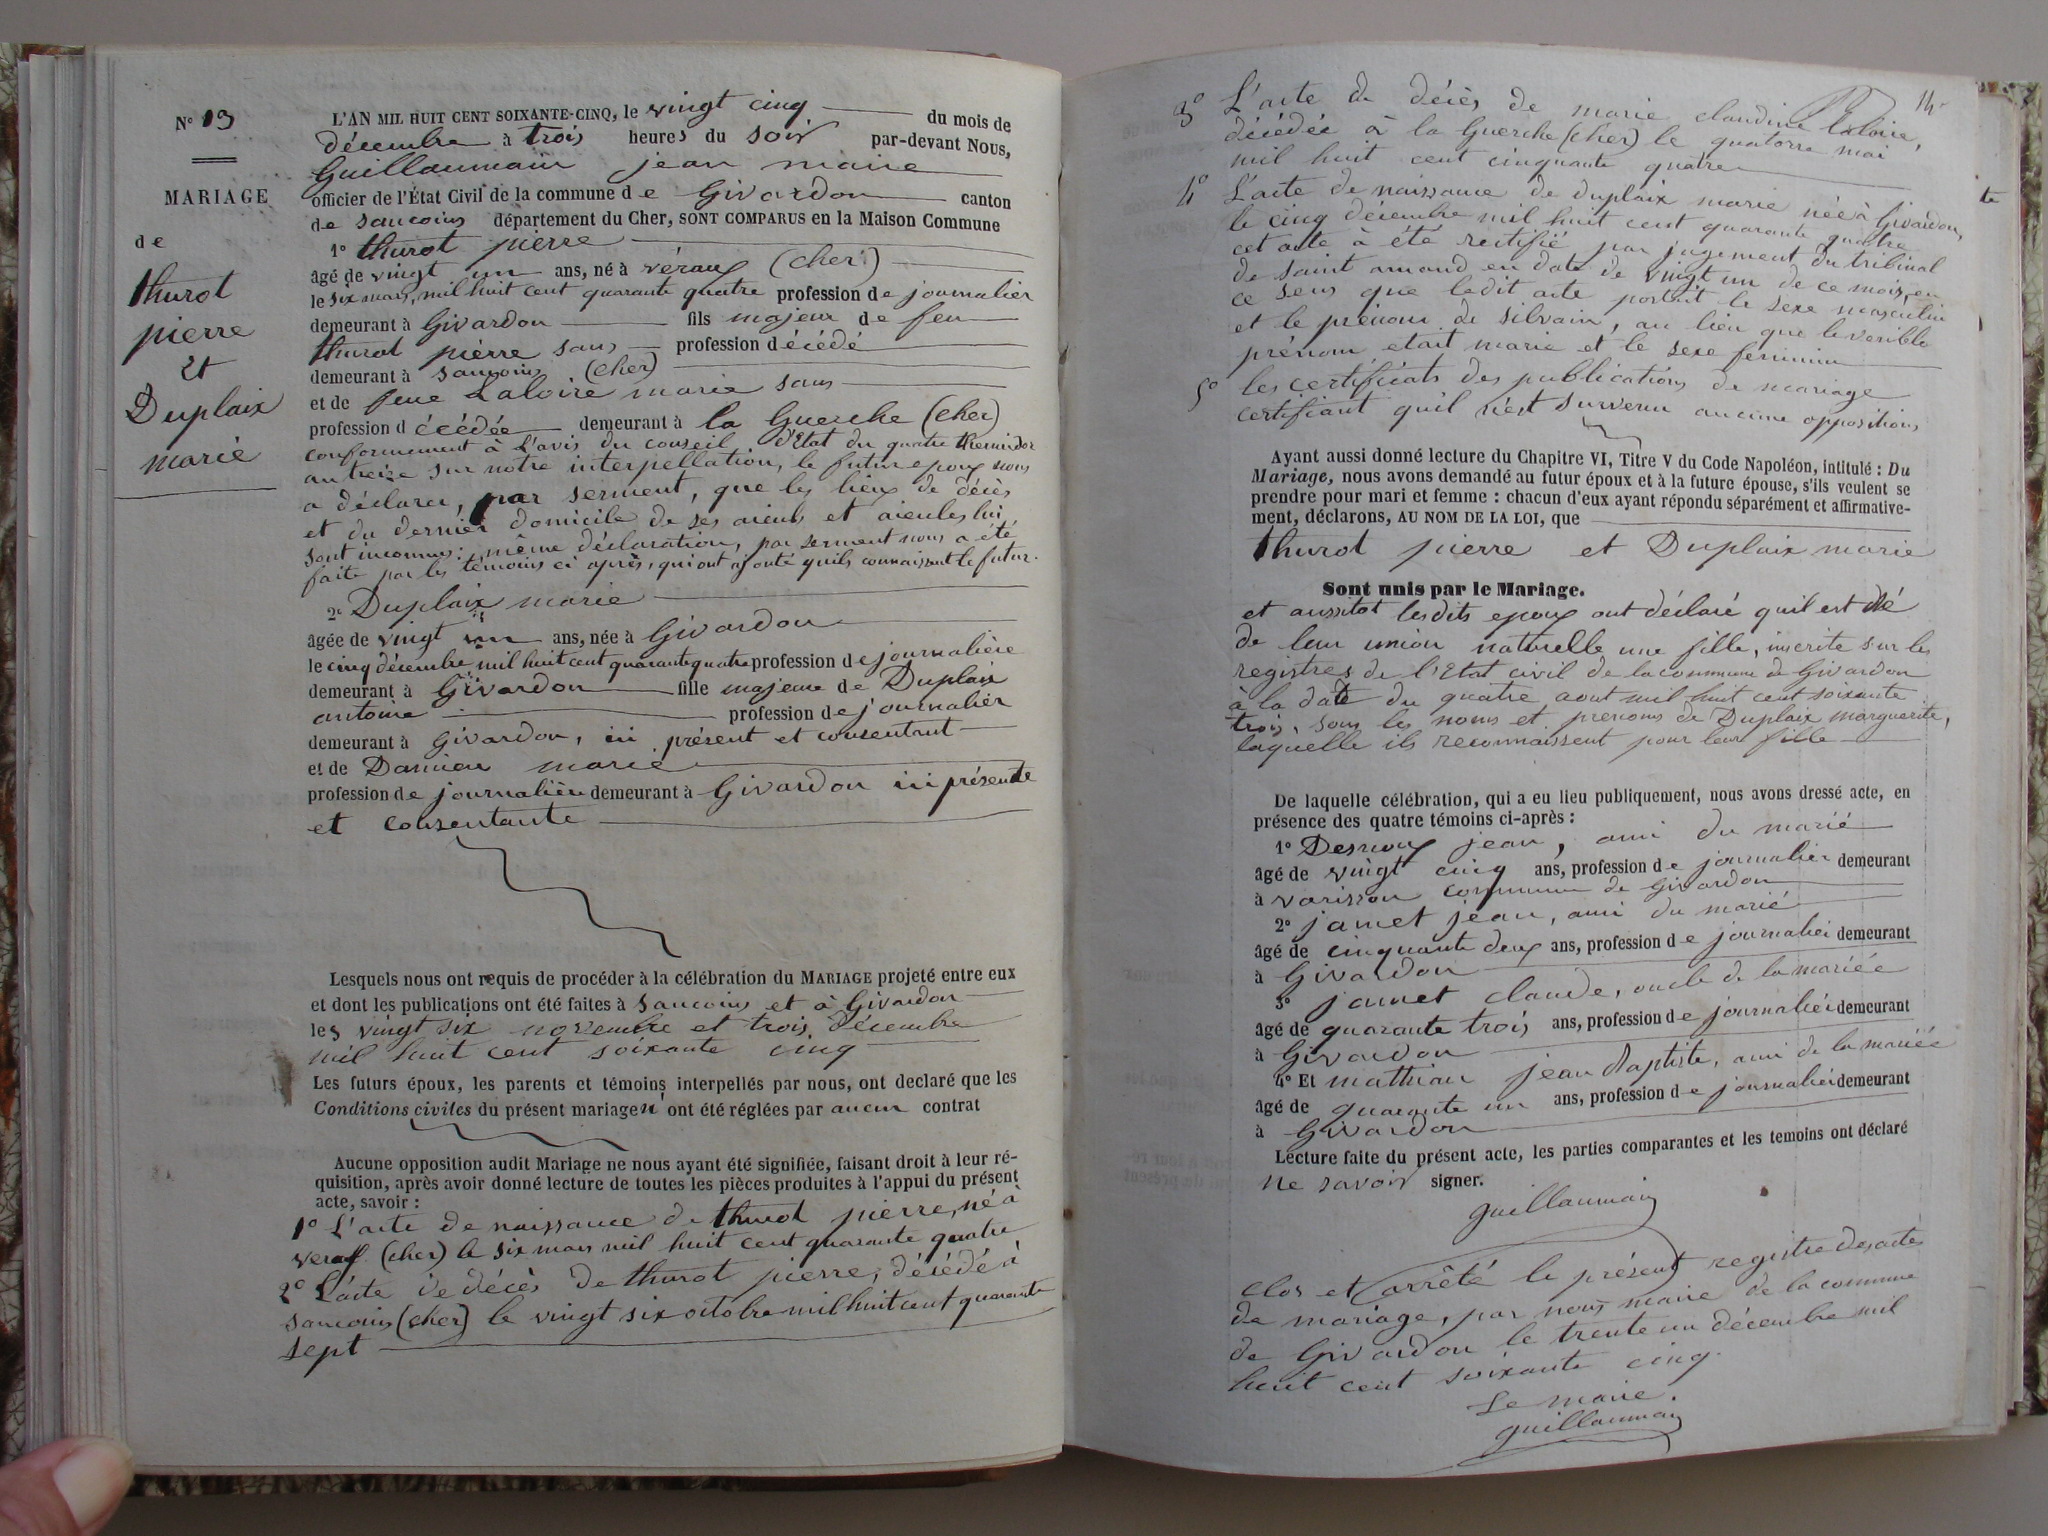 N° 13
MARIAGE
de
thurot
pierre
et
Duplaix
marie
L'AN MIL HUIT CENT SOIXANTE-CINQ, le vingt cinq du mois de
décembre à trois heures du soir par-devant NOUS,
Guillaumain jean maire
officier de l'État Civil de la commune de Givardon canton
de sancoins département du Cher, SONT COMPARUS en la Maison Commune
1° thurot pierre
âgé de vingt un ans, né à véraux (cher)
le six mars, mil huit cent quarante quatre profession de journalier
demeurant à Givardon fils majeur de feu
thurot pierre sans profession décédé
demeurant à sancoins (cher)
et de feue Laloire marie sans
profession décédée demeurant à la Guerche (cher)
conformement à l'avis du conseil d'Etat du quatre themidor
an treize sur notre interpellation, le futur epoux nous
a déclaré, par serment, que les lieux de décès
et du dernier domicile de ses aieuls et aieules lui
sont inconnus: même déclaration, par serment nous a été
faite par les témoins ci après, qui ont ajouté quils connaissent le futur.
2° Duplaix marie
âgée de vingt un ans, née à Givardon
le cinq décembre mil huit cent quarante quatre profession de journalière
demeurant à Givardon fille majeure de Duplaix
antoine profession de journalier
demeurant à Givardon, ici présent et consentant
et de Damien marie
profession de journalière demeurant à Givardon ici présente
et consentante
Lesquels nous ont requis de procéder à la célébration du MARIAGE projeté entre eux
et dont les publications ont été faites à sancoins et à Givardon
les vingt six novembre et trois décembre
mil huit cent soixante cinq
Les futurs époux, les parents et témoins interpellés par nous, ont declaré que les
Conditions civiles du présent mariage n'ont été réglées par aucun contrat
Aucune opposition audit Mariage ne nous ayant été signifiée, faisant droit à leur ré-
quisition, après avoir donné lecture de toutes les pièces produites à l'appui du présent
acte, savoir :
1° L'acte de naissance de thurot pierre, né à
veraux (cher) le six mars mil huit cent quarante quatre
2° L'acte de décès de thurot pierre, décédé à
sancoins (cher) le vingt six octobre mil huit cent quarante
sept
14
3° L'acte de décès de marie claudine laloire,
décédée à la Guerche (cher) le quatorze mai
mil huit cent cinquante quatre
4° L'acte de naissance de duplaix marie née à Givardon,
le cinq décembre mil huit cent quarante quatre
cet acte à été rectifié par jugement du tribunal
de saint amand en date de vingt un de ce mois, en
ce sens que ledit acte portait le sexe masculin
et le prénom de Silvain, au lieu que le verible
prénom etait marie et le sexe feminin
5° les certificats des publications de mariage
certifiant quil n'est survenu aucune opposition
Ayant aussi donné lecture du Chapitre VI, Titre V du Code Napoléon, intitulé : Du
Mariage, nous avons demandé au futur époux et à la future épouse, s'ils veulent se
prendre pour mari et femme : chacun d'eux ayant répondu séparément et affirmative-
ment, déclarons, AU NOM DE LA LOI, que
thurot pierre et Duplaix marie
Sont unis par le Mariage.
et aussitot lesdits epoux ont déclaré quil est né
de leur union naturelle une fille, inscrite sur les
registres de l'Etat civil de la commune de Givardon
à la date du quatre aout mil huit cent soixante
trois, sous les noms et prenoms de Duplaix marguerite,
laquelle ils reconnaissent pour leur fille
De laquelle célébration, qui a eu lieu publiquement, nous avons dressé acte, en
présence des quatre témoins ci-après :
1° Desnoux jean, ami du marié
âgé de vingt cinq ans, profession de journalier demeurant
à varisson commune de Givardon
2° jamet jean, ami du marié
âgé de cinquante deux ans, profession de journalier demeurant
à Givardon
3° jamet claude, oncle de la mariée
âgé de quarante trois ans, profession de journalier demeurant
à Givardon
4° Et mathian jean Baptiste, ami de la mariée
âgé de quarante un ans, profession de journalier demeurant
à Givardon
Lecture faite du présent acte, les parties comparantes et les temoins ont déclaré
ne savoir signer.
guillaumain
clos et arrêté le présent registre des actes
de mariage, par nous maire de la commune
de Givardon le trente un décembre mil
huit cent soixante cinq.
Le maire.
guillaumain